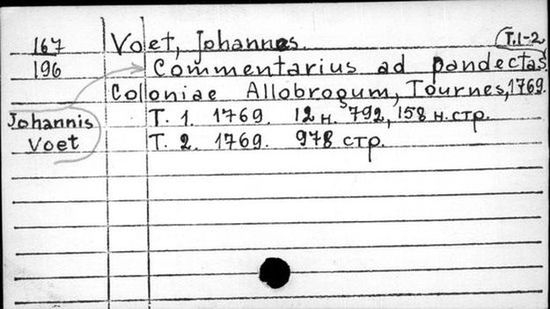 167 Voet, Johannes. T.1-2
196 Commentarius ad pandectas
Coloniae Allobrogum, Tournes, 1769.
Johannis T. 1. 1769. 12 н. 792, 158 н. стр.
Voet T. 2. 1769. 978 стр.